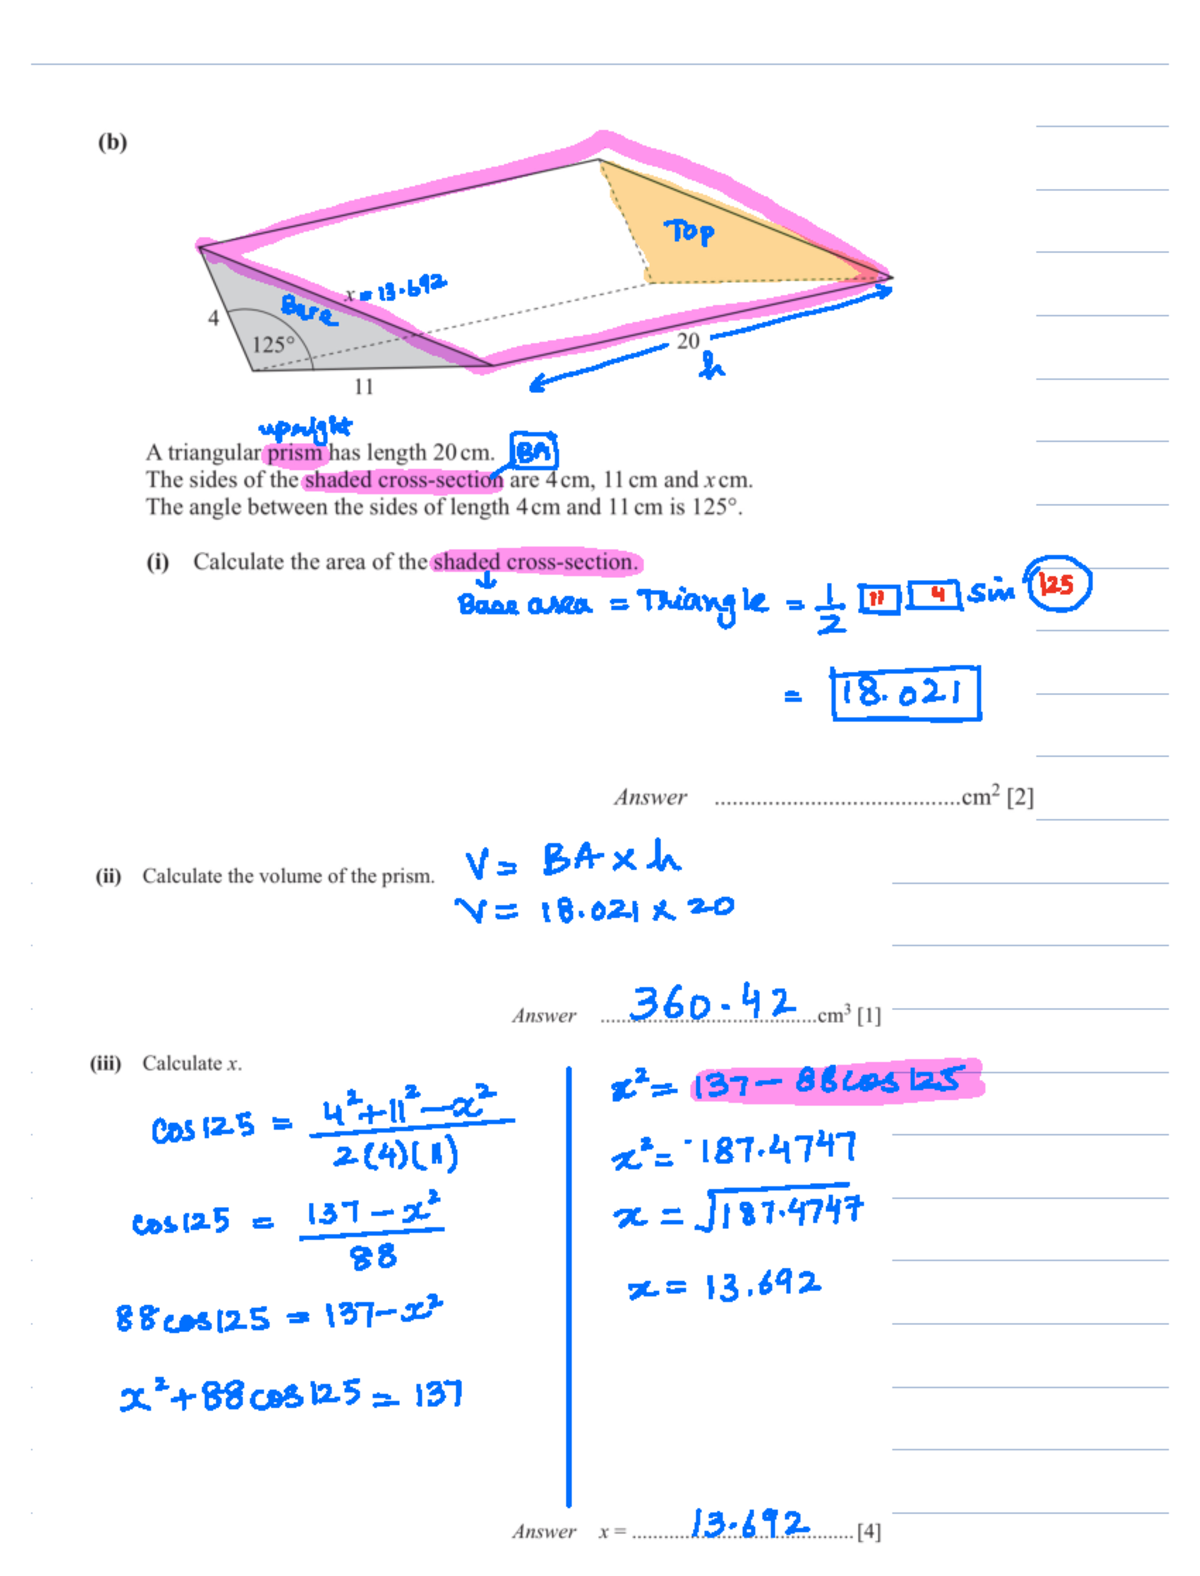 (b)
Top
x = 13.692
Base
4
125°
20
h
11
upright
A triangular prism has length 20 cm. BA
The sides of the shaded cross-section are 4 cm, 11 cm and x cm.
The angle between the sides of length 4 cm and 11 cm is 125°.
(i) Calculate the area of the shaded cross-section.
Base area = Triangle = 1/2 11 4 sin 125
= 18.021
Answer ........................................cm² [2]
(ii) Calculate the volume of the prism.
V = BA x h
V = 18.021 x 20
Answer ....360.42....cm³ [1]
(iii) Calculate x.
cos 125 = 4² + 11² − x² / 2(4)(11)
cos 125 = 137 − x² / 88
88 cos 125 = 137 − x²
x² + 88 cos 125 = 137
x² = 137 − 88 cos 125
x² = 187.4747
x = √187.4747
x = 13.692
Answer x = ....13.692.... [4]